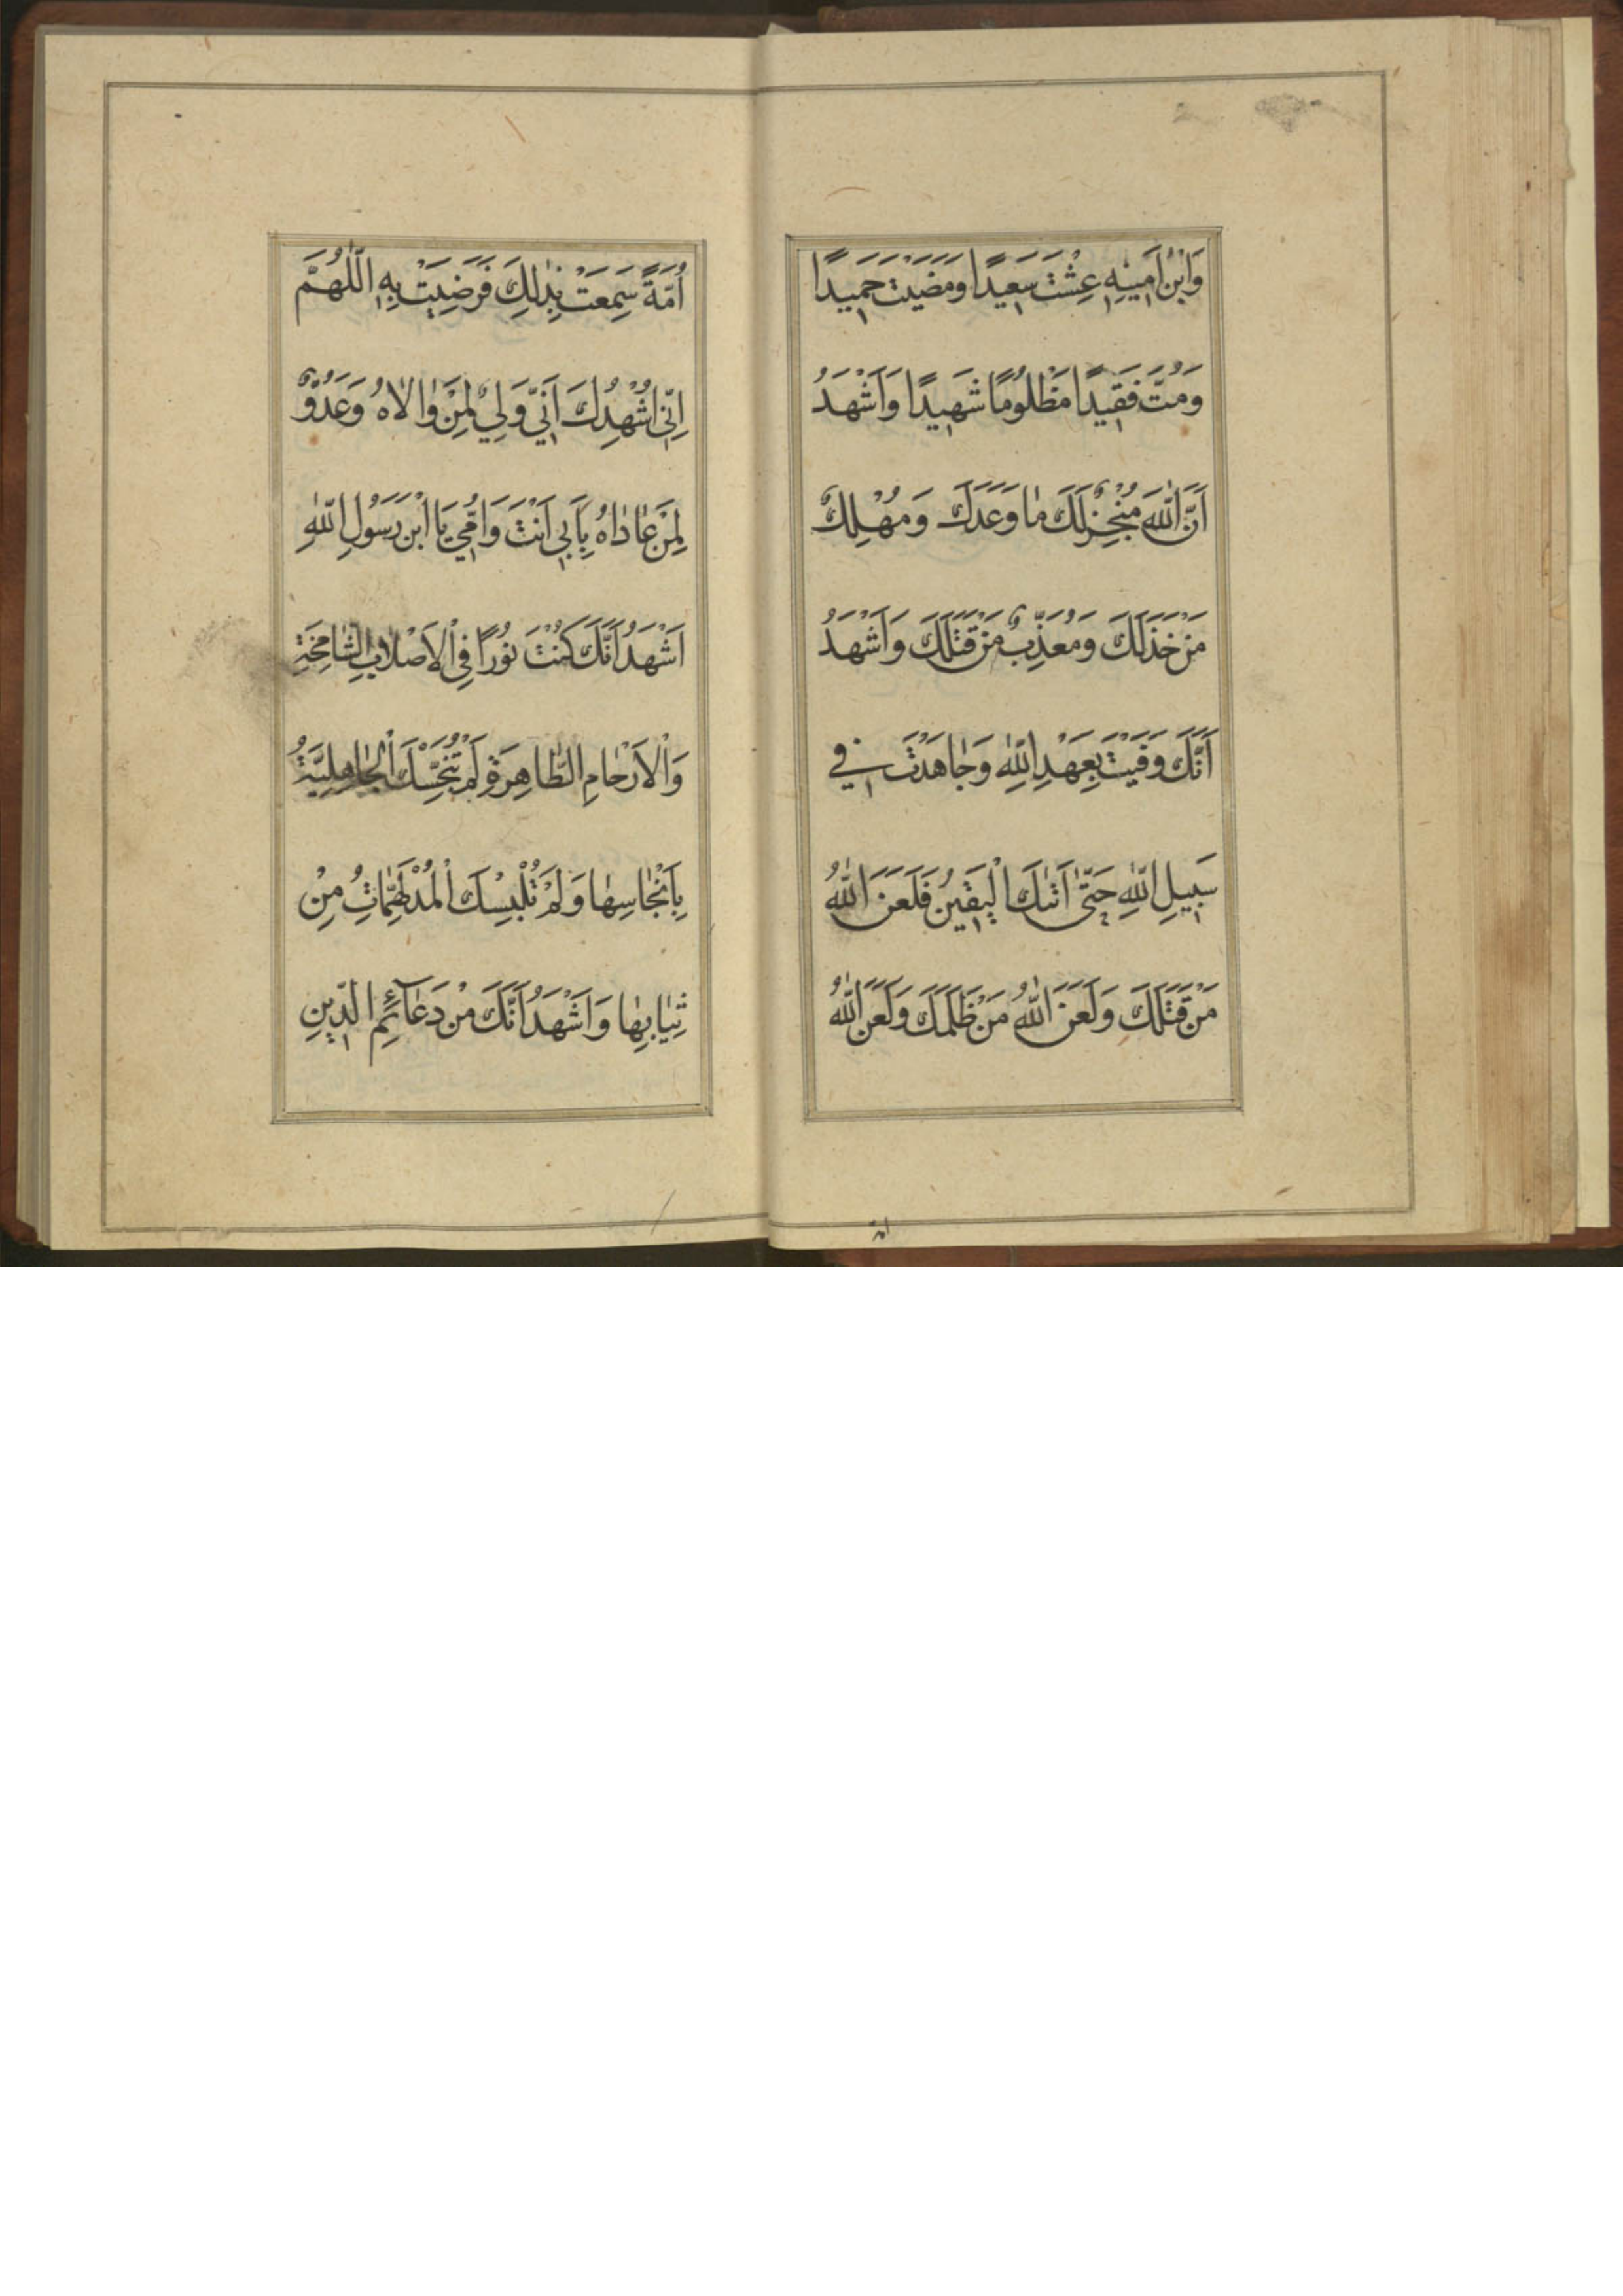 وَابْنُ اَمِينِهِ عِشْتَ سَعِيدًا وَمَضَيْتَ حَمِيدًا
وَمُتَّ فَقِيدًا مَظْلُومًا شَهِيدًا وَاَشْهَدُ
اَنَّ اللّٰهَ مُنْجِزٌ لَكَ مٰا وَعَدَكَ وَمُهْلِكٌ
مَنْ خَذَلَكَ وَمُعَذِّبٌ مَنْ قَتَلَكَ وَاَشْهَدُ
اَنَّكَ وَفَيْتَ بِعَهْدِ اللّٰهِ وَجٰاهَدْتَ فِي
سَبِيلِ اللّٰهِ حَتّٰى اَتٰىكَ الْيَقِينُ فَلَعَنَ اللّٰهُ
مَنْ قَتَلَكَ وَلَعَنَ اللّٰهُ مَنْ ظَلَمَكَ وَلَعَنَ اللّٰهُ
امة
اُمَّةً سَمِعَتْ بِذٰلِكَ فَرَضِيَتْ بِهِ اَللّٰهُمَّ
اِنِّي اُشْهِدُكَ اَنِّي وَلِيٌّ لِمَنْ وٰالاٰهُ وَعَدُوٌّ
لِمَنْ عٰادٰاهُ بِاَبِي اَنْتَ وَاُمِّي يَا ابْنَ رَسُولِ اللّٰهِ
اَشْهَدُ اَنَّكَ كُنْتَ نُورًا فِي الْاَصْلٰابِ الشّٰامِخَةِ
وَالْاَرْحٰامِ الطّٰاهِرَةِ لَمْ تُنَجِّسْكَ الْجٰاهِلِيَّةُ
بِاَنْجٰاسِهٰا وَلَمْ تُلْبِسْكَ الْمُدْلَهِمّٰاتُ مِنْ
ثِيٰابِهٰا وَاَشْهَدُ اَنَّكَ مِنْ دَعٰآئِمِ الدِّينِ